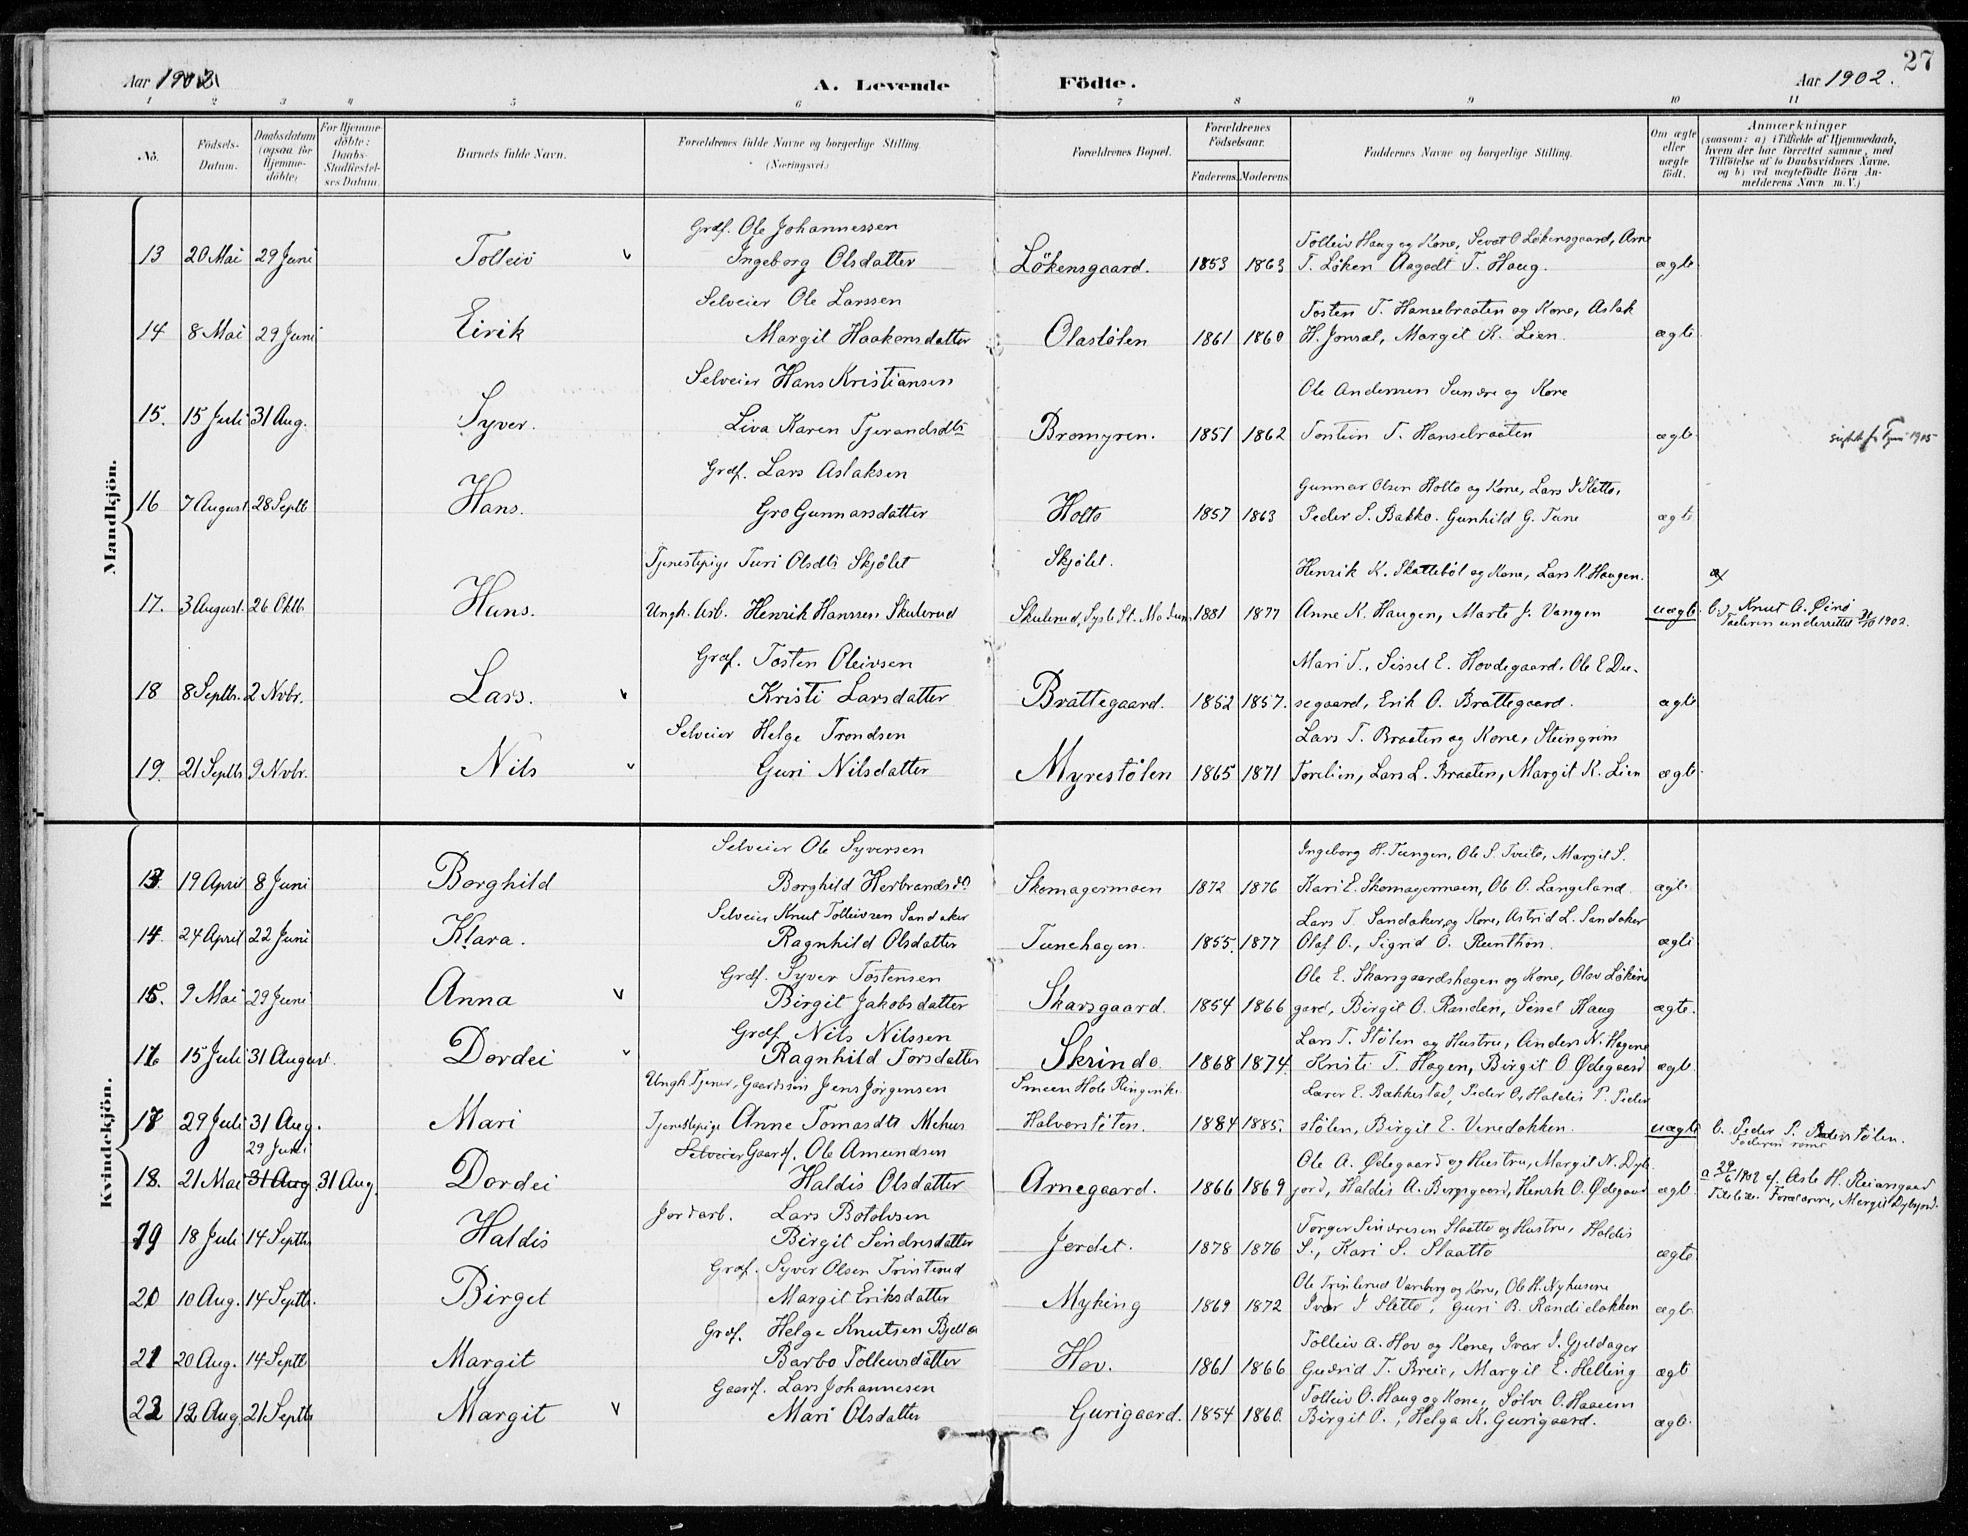 27
Aar 1902
A. Levende Födte.
Aar 1902.
1 2 3 4 5 6 7 8 9 10 11
No.
Födsels-Datum.
Daabsdatum (ogsaa for Hjemmedöbte)
For Hjemmedöbte: Daabs-Stadfæstelses Datum
Barnets fulde Navn.
Forældrenes fulde Navne og borgerlige Stilling (Næringsvei.)
Forældrenes Bopæl.
Forældrenes Födselsaar.
Faderens. Moderens.
Faddernes Navne og borgerlige Stilling.
Om ægte eller uægte födt.
Anmærkninger
(saasom: a) i Tilfælde af Hjemmedaab, hvem der har forrettet samme, med Tilföielse af to Daabsvidners Navne. og b) ved uægtefödte Börn Anmelderens Navn m. V.)
Mandkjön.
Grdf. Ole Johannessen
Tolleiv Haug og Kone, Sevat O Lökensgaard, Arne
13 20 Mai 29 Juni Tolleiv v Ingeborg Olsdatter Lökensgaard. 1853 1863 T. Löken Aagodt T. Haug. ægte
Selveier Ole Larssen
Tosten T. Hansebraaten og Kone, Aslak
14 8 Mai 29 Juni Eirik Margit Haakensdatter Olastölen 1861 1860 H. Jonsat, Margit K. Lien. ægte
Selveier Hans Kristiansen
Ole Andersen Sundre og Kone
15. 15 Juli 31 Aug. Syver. Liva Karen Tjerandsdtr Bromyren. 1851 1862 Torstein T. Hansebraaten ægte
Grdf. Lars Aslaksen
Gunnar Olsen Holto og Kone, Lars J Sletto,
16 7 August. 28 Septb Hans. Gro Gunnarsdatter Holto 1857 1863 Peder S. Bakko. Gunhild G. Tune ægte
Tjenestepige Turi Olsdtr Skjölet Skjölet. Henrik K. Skatteböl og Kone, Lars K. Haugen.
17. 3 August. 26 Oktb Hans. Ungk. Arb. Henrik Hanssen Skulerud Skulerud, Sysle St. Modum 1881 1877 Anne K. Haugen, Marte J. Vangen uægte b. Knut A. Öino
Faderen underrettet 31/10 1902.
Grdf. Tosten Oleivsen
Mari T., Sissel E. Hovdegaard, Ole E Du-
18 8 Septbr. 2 Nvbr. Lars. v Kristi Larsdatter Brattegaard. 1852 1857. segaard, Erik O. Brattegaard. ægte
Selveier Helge Trondsen
Lars T. Braaten og Kone, Steingrim
19. 21 Septbr 9 Nvbr. Nils v Guri Nilsdatter Myrestölen 1865 1871 Torelien, Lars L. Braaten, Margit K. Lien ægte
Kvindekjön.
Selveier Ole Syversen
Ingeborg H. Tungen, Ole S. Tveito, Margit S.
13. 19 April 8 Juni Borghild Borghild Herbrandsdtr Skomagermoen 1872 1876 Kari E. Skomagermoen, Ole O. Langeland. ægte
Selveier Knut Tolleivsen Sandaker
Lars T. Sandaker og Kone, Astrid L. Sandaker
14. 24 April 22 Juni Klara. Ragnhild Olsdatter Tunehagen. 1855. 1877 Olaf O., Sigrid O. Runthon. ægte
Grdf. Syver Tostensen
Ole E. Skarsgaardshagen og Kone, Olav Lökens
15. 9 Mai 29 Juni Anna v Birgit Jakobsdatter Skarsgaard. 1854 1866 gard, Birgit O. Randen, Sissel Haug ægte.
Grdf. Nils Nilssen
Lars T. Stölen og Hustru, Anders N. Hagene
16 15 Juli 31 August. Dordei v Ragnhild Torsdatter Skrindo. 1868 1874. Kristi T. Hagen, Birgit O Ødegaard ægte
Ungk. Tjener, Gaardssön Jens Jörgensen Smeen Hole Ringerike Larer E. Bakkestad, Peder O, Haldis P. Peder
17 29 Juli 31 Aug. Mari Tjenestepige Anne Tomasdtr Mehus Halverstölen. 1884 1885. stölen, Birgit E. Vinedokken. uægte b. Peder P. Pederstölen.
29 Juni
Selveier Gaardf. Ole Amundsen
Ole A. Ødegaard og Hustru, Margit N. Dyb-
18. 21 Mai 31 Aug 31 Aug. Dordei Haldis Olsdatter Arnegaard. 1866 1869 jord, Haldis A. Bergsgaard, Henrik O. Ødegaard ægte a 29/6 1902 af Asle H. Reiarsgaard
Tilstede: Forældrene, Margit Dybjord.
Jordarb. Lars Botolvsen
Torger Sindresen Slaatto og Hustru, Haldis
19 18 Juli 14 Septbr Haldis Birgit Sindresdatter Jordet. 1878 1876 S., Kari S. Slaatto ægte
Grdf. Syver Olsen Trinterud
Ole Trinterud Varaberg og Kone, Ole H. Nyhusene
20 10 Aug. 14 Septbr. Birget Margit Eriksdatter Myking 1869 1872 Ivar J Sletto, Guri B. Randielokken ægte
Grdf. Helge Knutsen Bjella
Tolleiv A. Hov og Kone, Ivar J. Gjeldager
21 20 Aug. 14 Septb Margit Barbo Tolleivsdatter Hov. 1861 1866 Gudrid T. Breie, Margit E. Helling ægte
Gaardf. Lars Johannesen
Tolleiv O. Haug og Kone, Sölve O. Haaem
22 12 Aug. 21 Septbr Margit v Mari Olsdatter Gurigaard. 1854 1860. Birgit O., Helga K. Gurigaard. ægte.